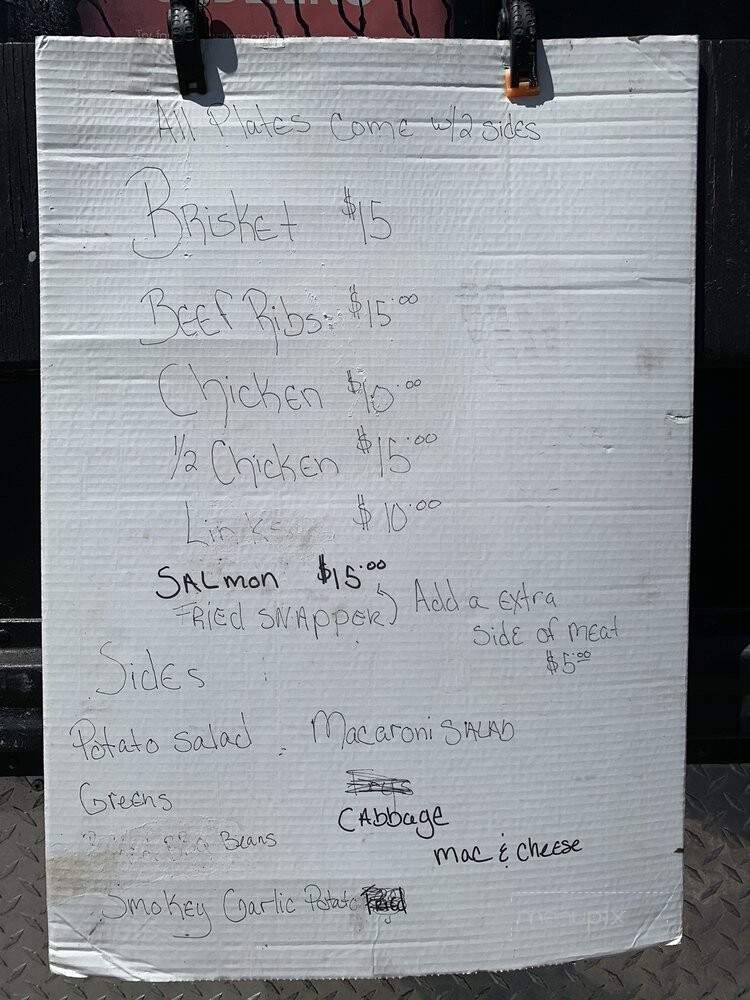 All Plates Come w/2 sides
Brisket $15
Beef Ribs $15.00
Chicken $10.00
1/2 Chicken $15.00
Links $10.00
SALmon $15.00
FRied SNAPPER
Add a extra
side of meat
$5.00
Sides
Potato Salad
Macaroni SALAD
Greens
CAbbage
Beans
mac & cheese
Smokey Garlic Potato